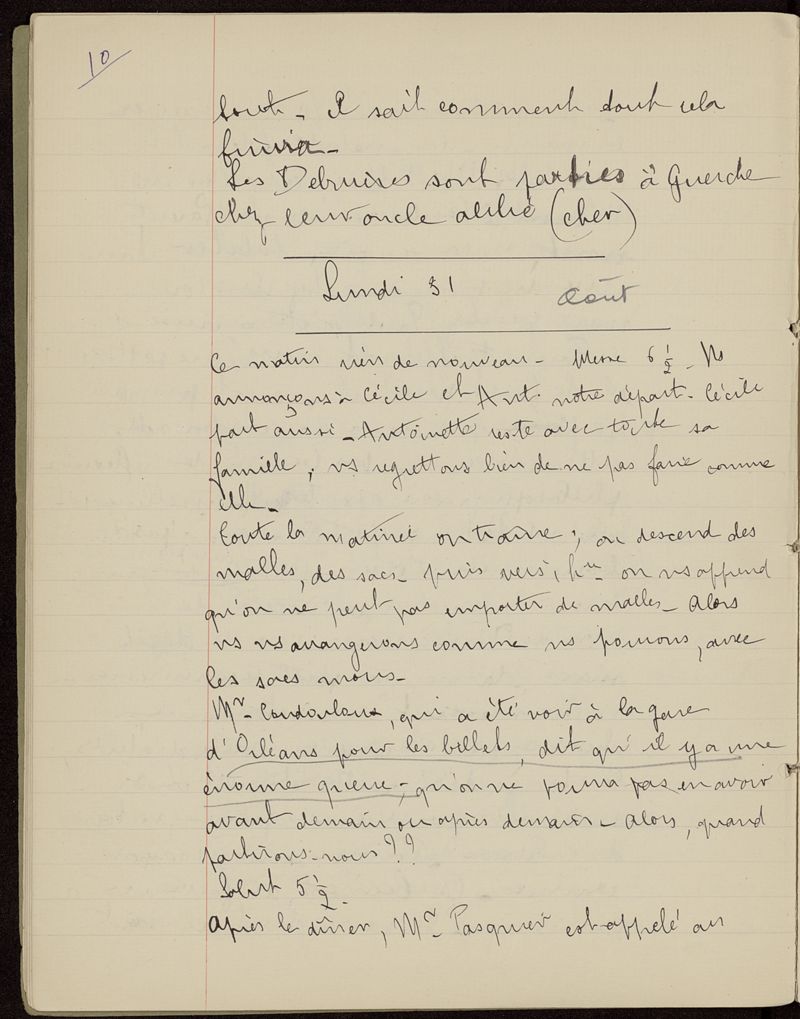 10
tout_ Il sait comment tout cela
finira_
Les Debruères sont parties à Guerche
chez leur oncle abbé (Cher)
Lundi 31 Août
Ce matin rien de nouveau_ Messe 6 ½_ Ns
annonçons à Cécile et Ant. notre départ_ Cécile
part aussi_ Antoinette reste avec toute sa
famille ; ns regrettons bien de ne pas faire comme
elle_
Toute la matinée on traîne ; on descend des
malles, des sacs_ puis vers 1 hre on ns apprend
qu'on ne peut pas emporter de malles_ Alors
ns ns arrangerons comme ns pouvons, avec
les sacs mous_
Mr_ , qui a été voir à la gare
d'Orléans pour les billets, dit qu'il y a une
énorme queue ; qu'on ne pourra pas en avoir
avant demain ou après demain_ Alors, quand
partirons-nous ??
Salut 5 ½_
Après le dîner, Mr_ Pasquier est appelé au